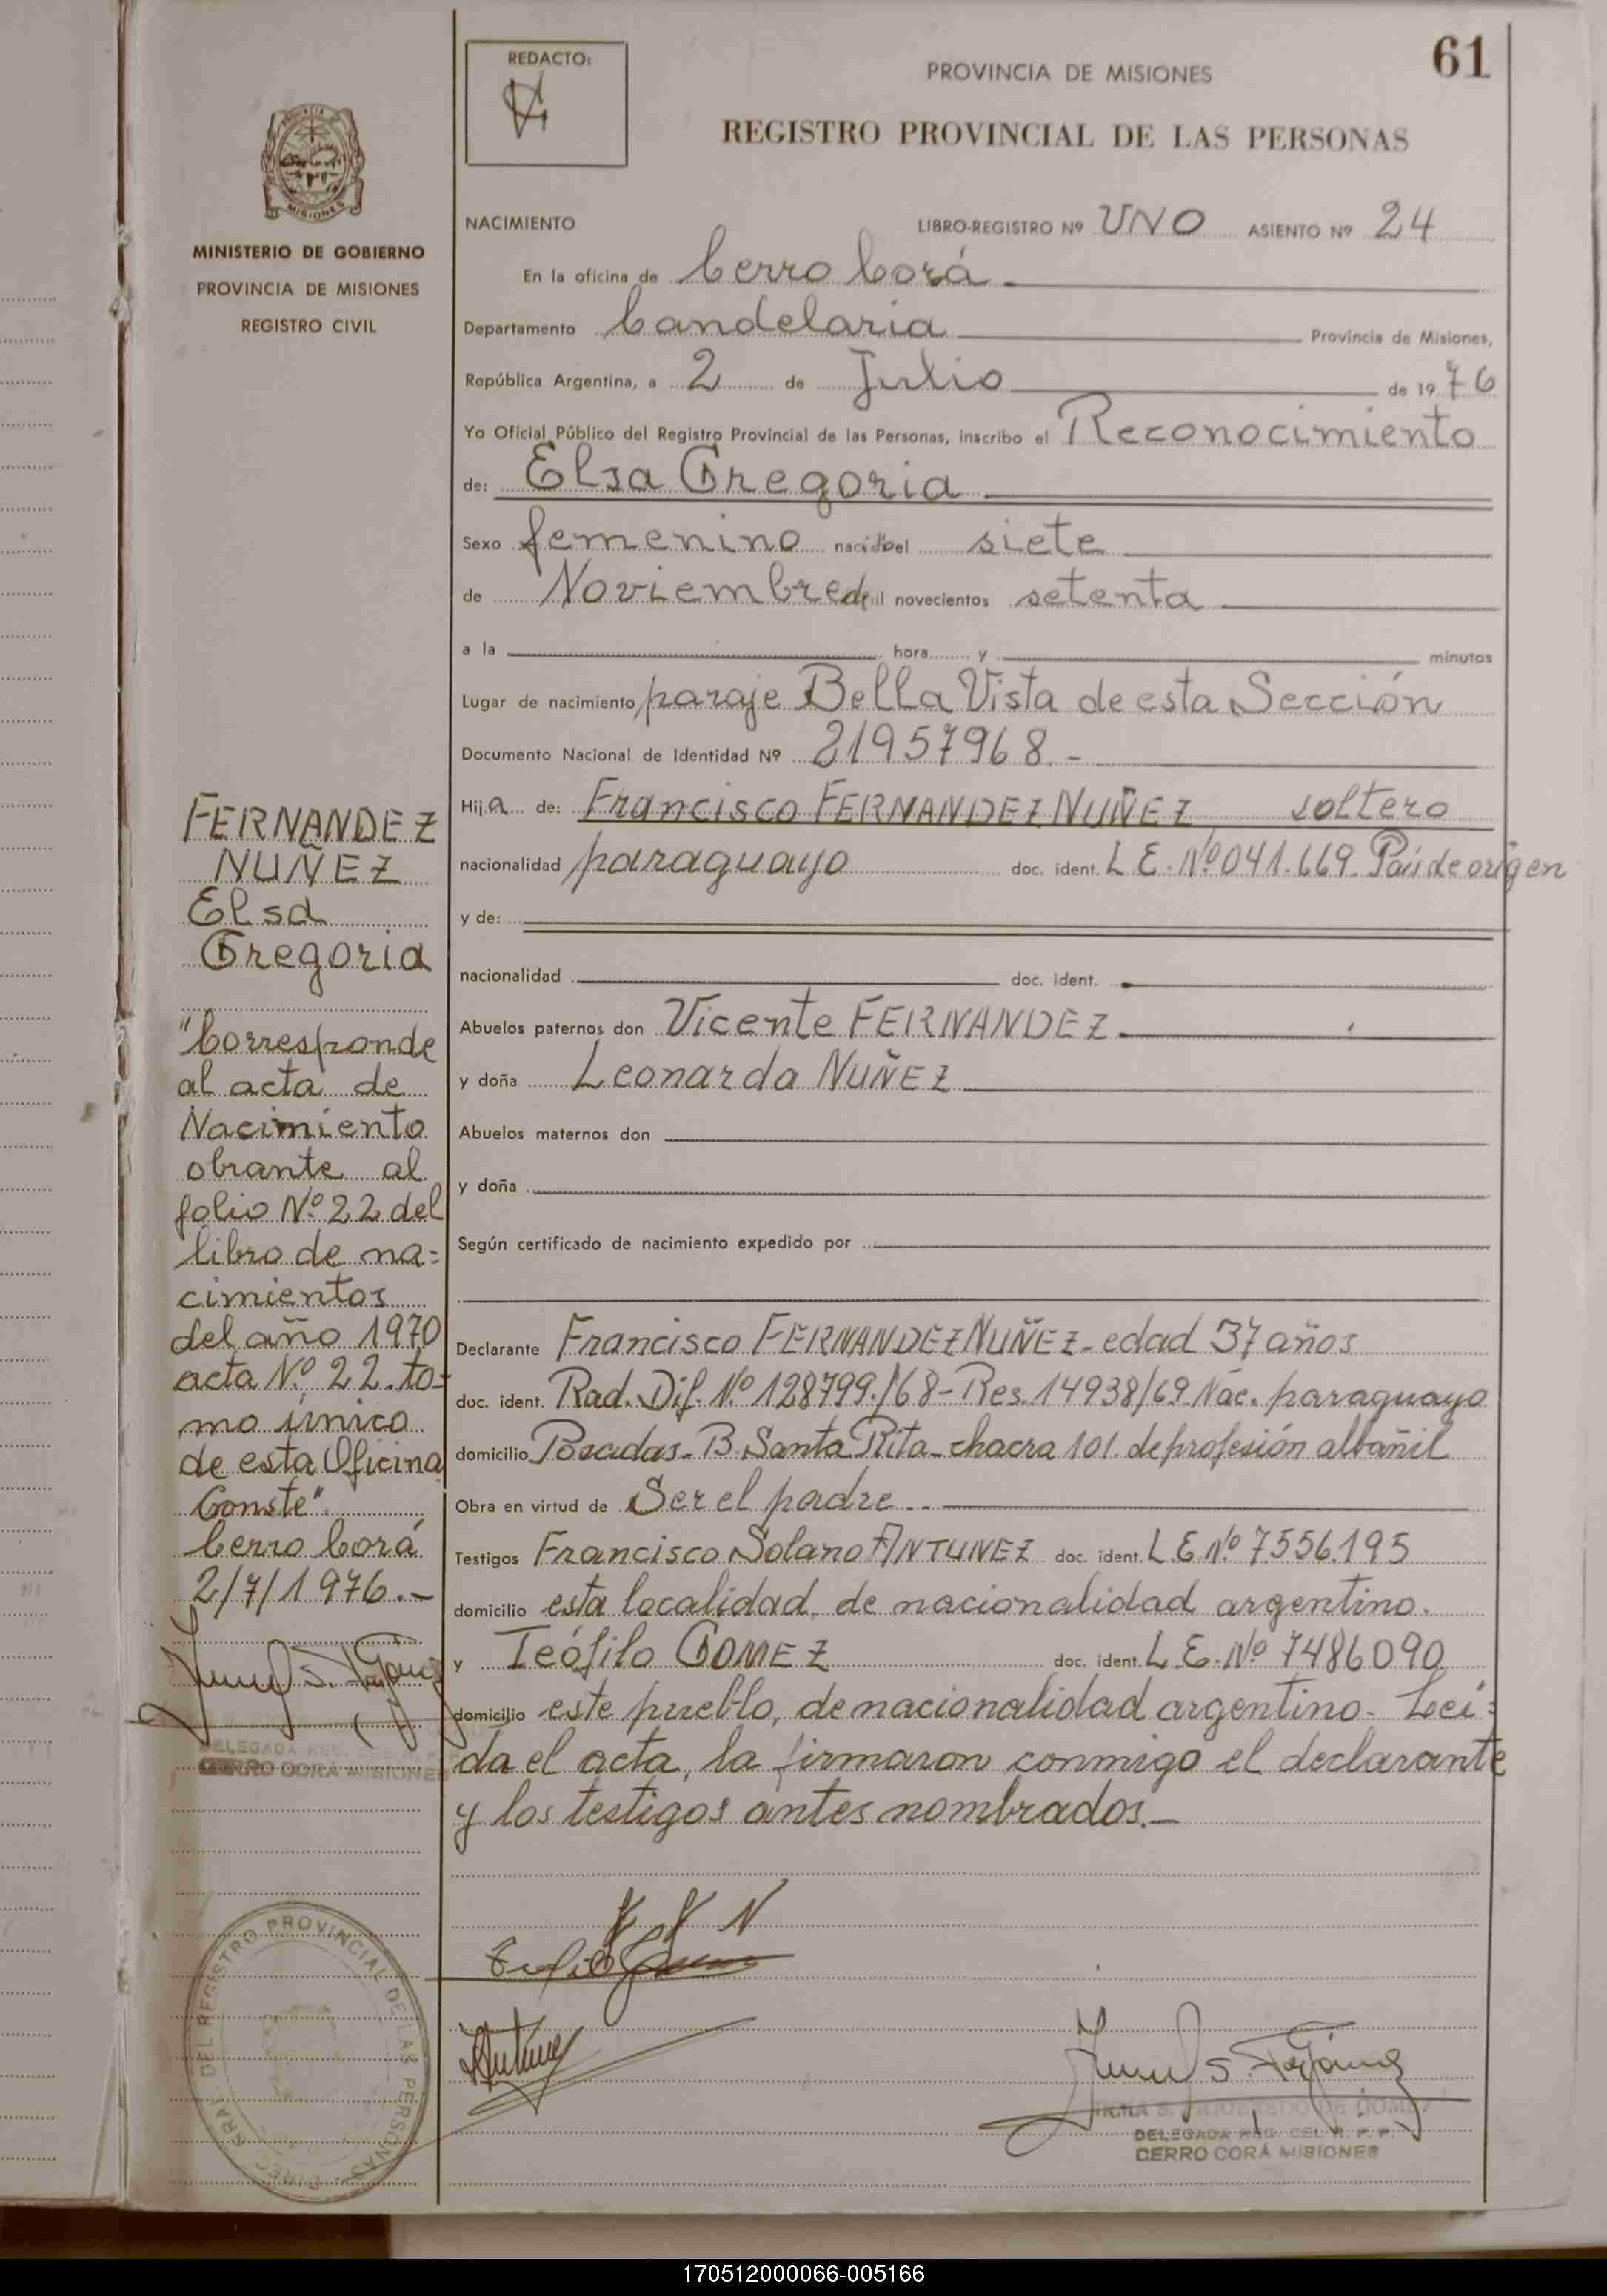 61
REDACTO:
PROVINCIA DE MISIONES
REGISTRO PROVINCIAL DE LAS PERSONAS
PROVINCIA
MISIONES
MINISTERIO DE GOBIERNO
PROVINCIA DE MISIONES
REGISTRO CIVIL
NACIMIENTO LIBRO-REGISTRO Nº UNO ASIENTO Nº 24
En la oficina de Cerro Corá
Departamento Candelaria Provincia de Misiones,
República Argentina, a 2 de Julio de 1976
Yo Oficial Público del Registro Provincial de las Personas, inscribo el Reconocimiento
de: Elsa Gregoria
Sexo femenino nacida el siete
de Noviembre de mil novecientos setenta
a la hora y minutos
Lugar de nacimiento paraje Bella Vista de esta Sección
Documento Nacional de Identidad Nº 21957968.-
Hija de: Francisco FERNANDEZ NUÑEZ soltero
nacionalidad paraguayo doc. ident. L E. Nº 041.669. País de origen
y de:
nacionalidad doc. ident.
Abuelos paternos don Vicente FERNANDEZ.
y doña Leonarda NUÑEZ
Abuelos maternos don
y doña
Según certificado de nacimiento expedido por
Declarante Francisco FERNANDEZ NUÑEZ- edad 37 años
doc. ident. Rad. Dif. Nº 128799./68- Res. 14938/69. Nac. paraguayo
domicilio Posadas- B. Santa Rita- chacra 101. de profesión albañil
Obra en virtud de Ser el padre..
Testigos Francisco Solano ANTUNEZ doc. ident. L.E. Nº 7556.195
domicilio esta localidad, de nacionalidad argentino.
y Teófilo GOMEZ doc. ident. L.E. Nº 7486090
domicilio este pueblo, de nacionalidad argentino- Leí=
da el acta, la firmaron conmigo el declarante
y los testigos antes nombrados.-
FERNANDEZ
NUÑEZ
Elsa
Gregoria
"Corresponde
al acta de
Nacimiento
obrante al
folio Nº 22 del
libro de na=
cimientos
del año 1970
acta Nº 22. to-
mo único
de esta Oficina
Conste".
Cerro Corá
2/7/1976.-
DELEGADA REG. DEL R. P. P.
CERRO CORA MISIONES
F F N
DIREC. GRAL. DEL REGISTRO PROVINCIAL DE LAS PERSONAS
DELEGADA REG. DEL R. P. P.
CERRO CORA MISIONES
170512000066-005166